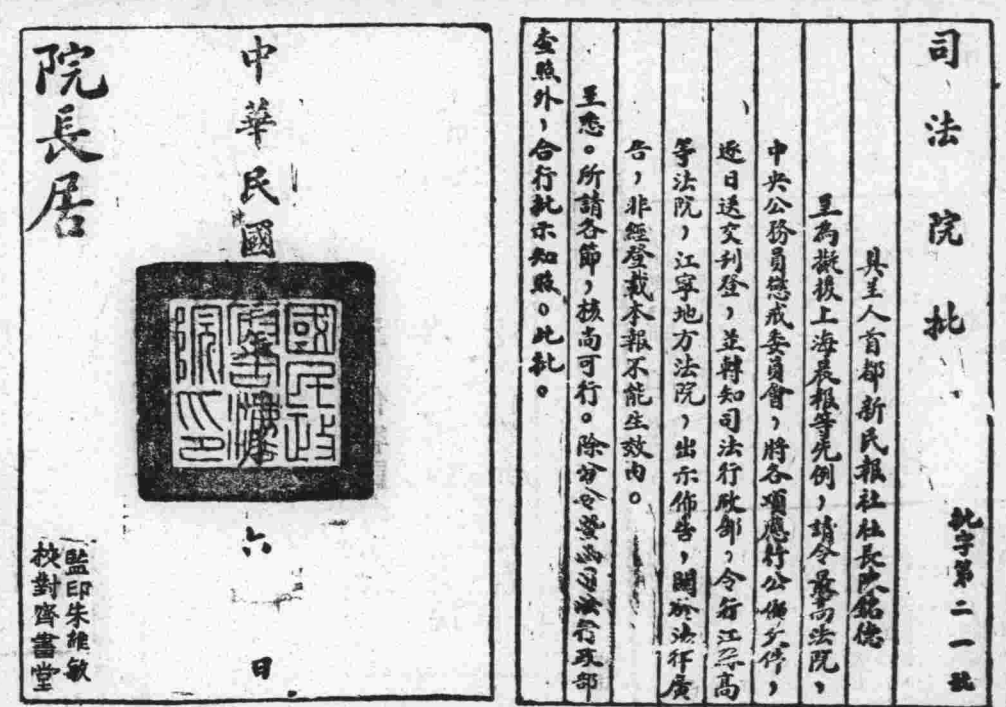 司法院批
批字第二一號
具呈人首都新民報社社長陳銘德
呈為擬援上海晨報等先例，請令最高法院，
中央公務員懲戒委員會，將各項應行公佈文件，
逐日送交刊登，並轉知司法行政部，令行江蘇高
等法院，江寧地方法院，出示佈告，關於法律廣
告，非經登載本報不能生效由。
呈悉。所請各節，核尚可行。除分令暨函司法行政部
查照外，合行批示知照。此批。
中華民國
六
日
院長居
監印朱維敏
校對齊書堂